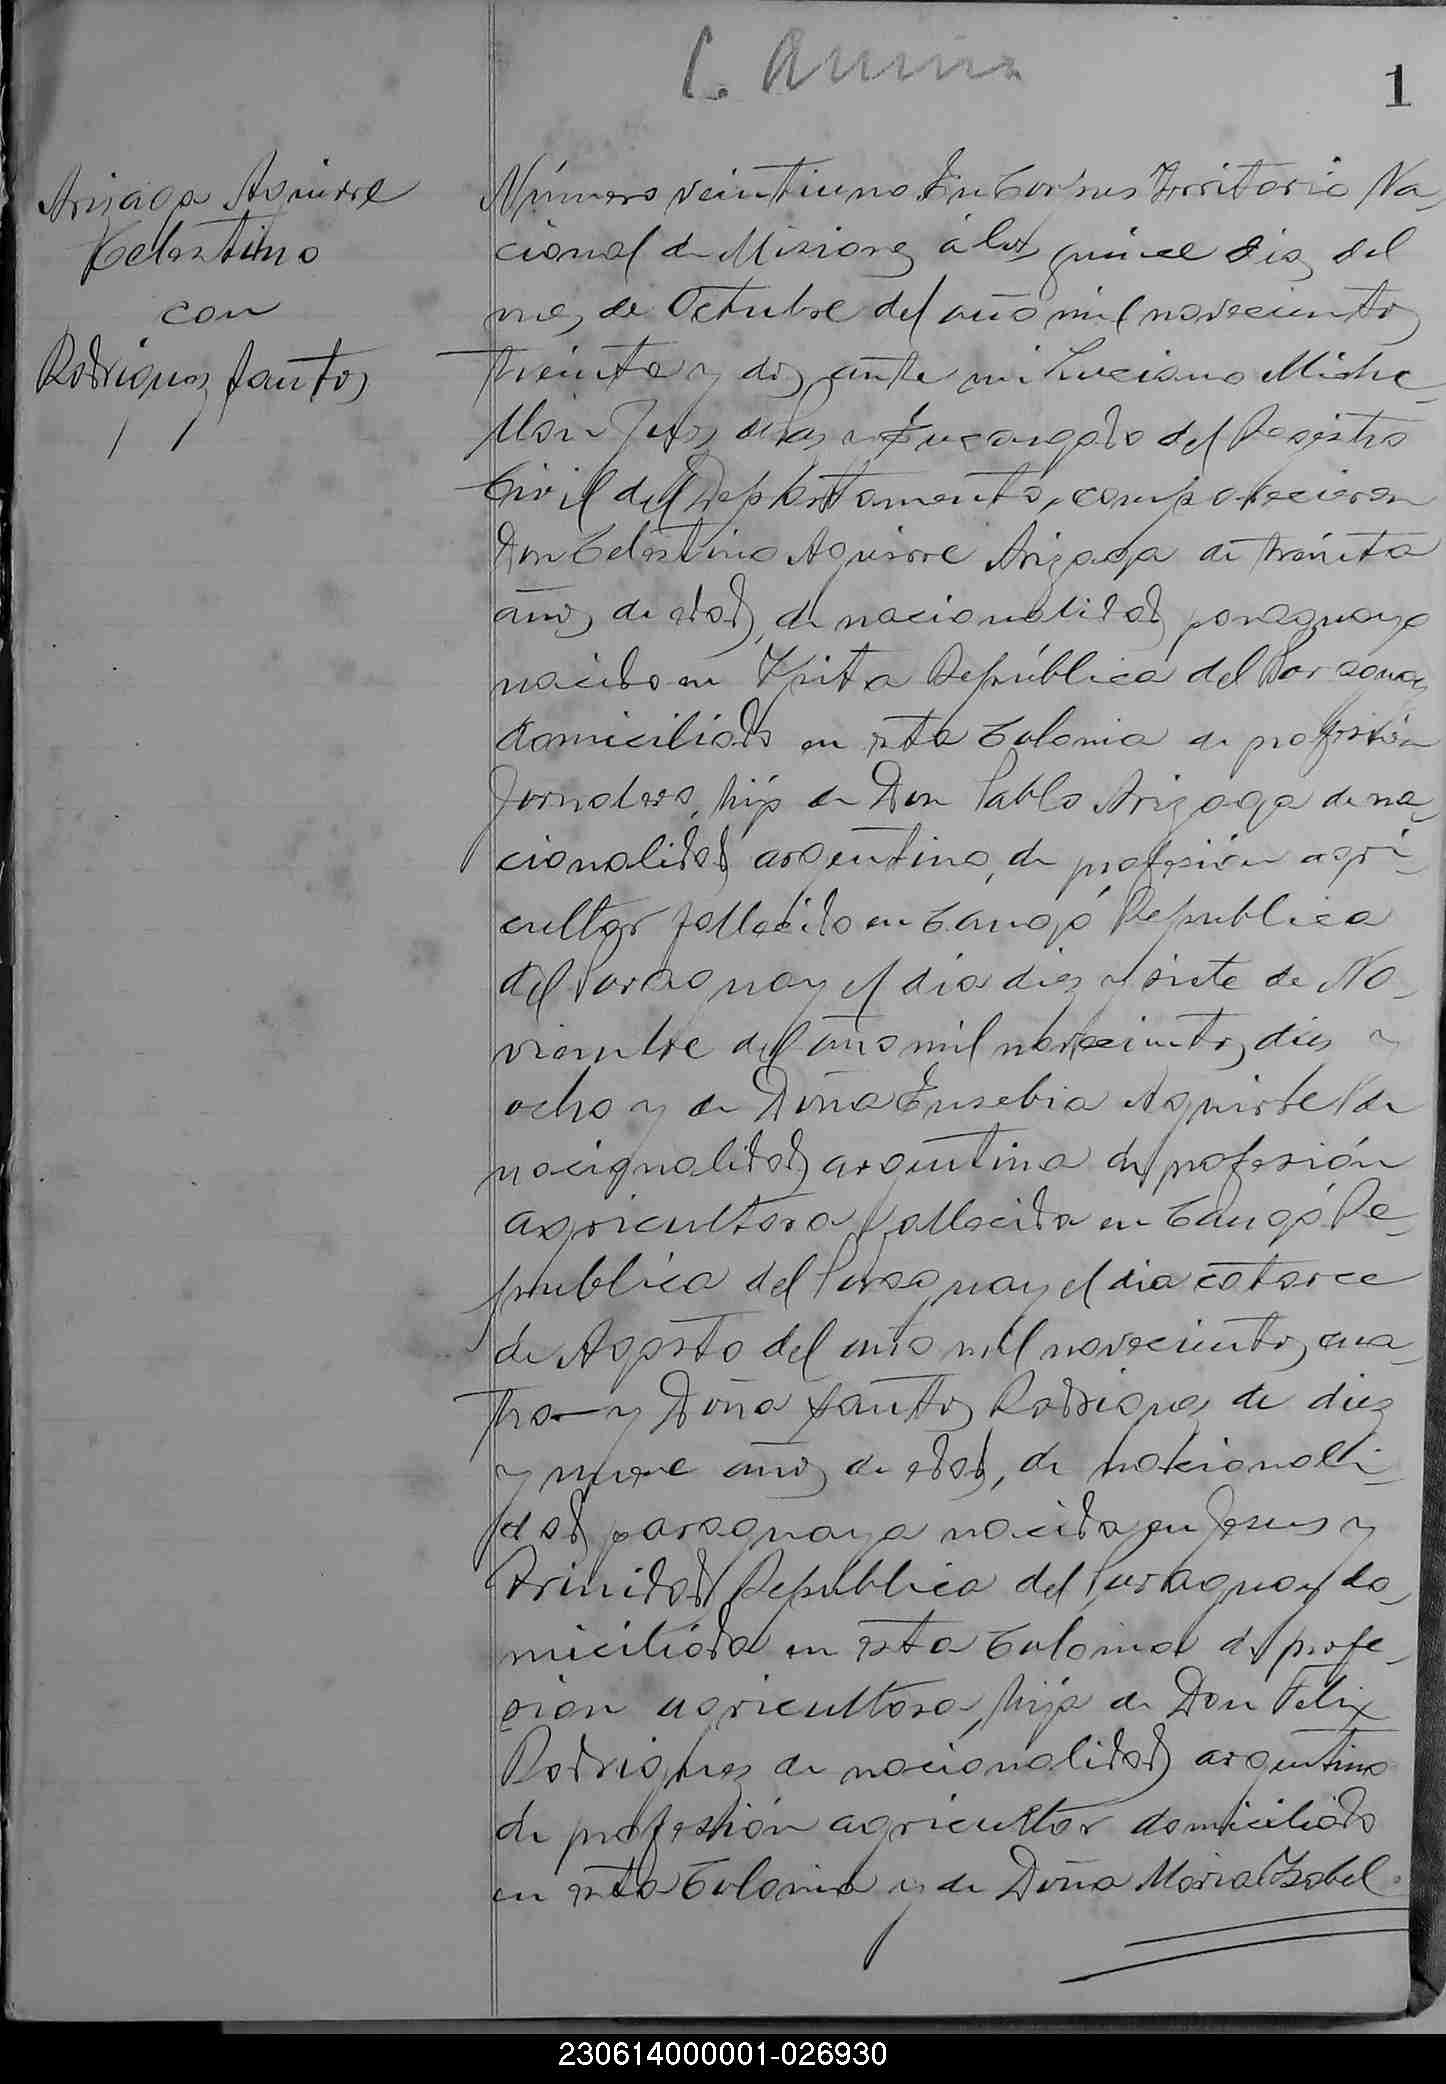 1
Arizaga Aguirre
Celestino
con
Rodriguez Santos
Número veintiuno En Corpus Territorio Na-
cional de Misiones á los quince dias del
mes de Octubre del año mil novecientos
treinta y dos ante mi Luciano Miche-
Juez de Paz y Encargado del Registro
Civil del Departamento, comparecieron
Don Celestino Aguirre Arizaga de treinta
años de edad, de nacionalidad paraguaya
nacido en República del Paraguay
domiciliado en esta Colonia de profesión
Jornalero, hijo de Don Pablo Arizaga de na-
cionalidad argentina, de profesión agri-
cultor fallecido en Cangó Republica
del Paraguay el dia diez y siete de No-
viembre del año mil novecientos diez y
ocho y de Doña Eusebia Aguirre de
nacionalidad argentina de profesión
agricultora fallecida en Cangó Re-
publica del Paraguay el dia catorce
de Agosto del año mil novecientos cua-
tro — y Doña Santos Rodriguez de diez
y nueve años de edad, de nacionali-
dad paraguaya nacida en Jesus y
Trinidad Republica del Paraguay do-
miciliada en esta Colonia de profe-
sion agricultora, hija de Don Felix
Rodriguez de nacionalidad argentina
de profesión agricultor domiciliado
en esta Colonia y de Doña Maria Ysabel
230614000001-026930